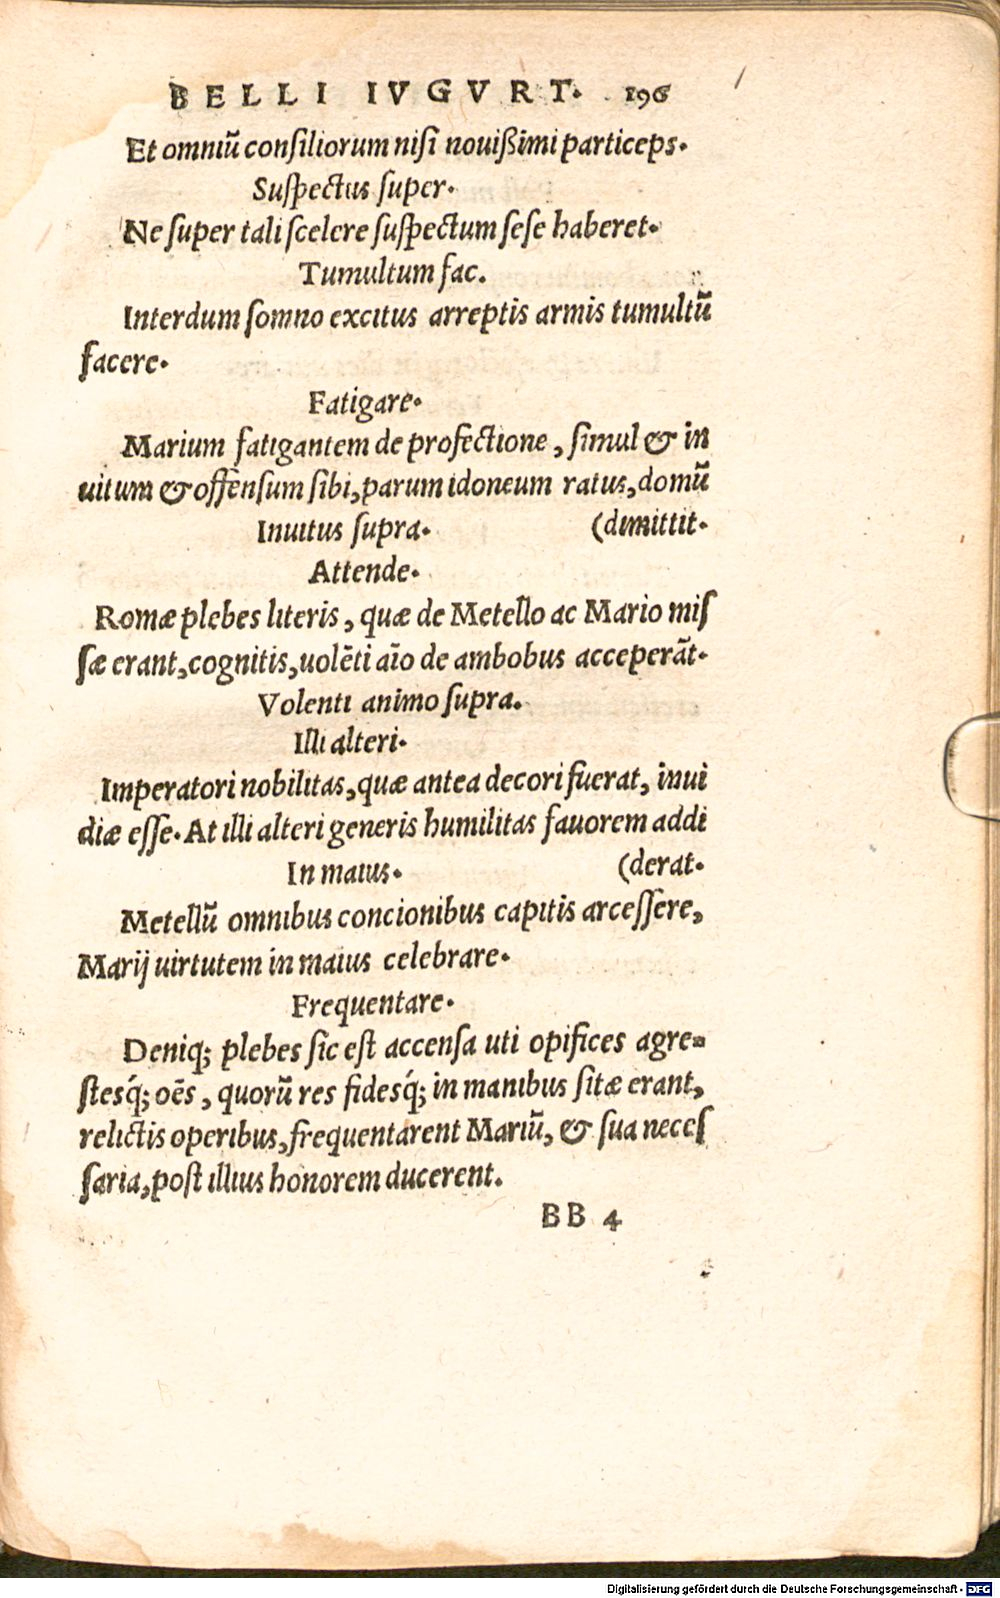 BELLI IVGVRT. 196
Et omniũ consiliorum nisi nouißimi particeps.
Suspectus super.
Ne super tali scelere suspectum sese haberet.
Tumultum fac.
Interdum somno excitus arreptis armis tumultũ
facere.
Fatigare.
Marium fatigantem de profectione, simul & in
uitum & offensum sibi, parum idoneum ratus, domũ
Inuitus supra. (dimittit.
Attende.
Romæ plebes literis, quæ de Metello ac Mario mis
sæ erant, cognitis, uolẽti aĩo de ambobus acceperãt.
Volenti animo supra.
Illi alteri.
Imperatori nobilitas, quæ antea decori fuerat, inui
diæ esse. At illi alteri generis humilitas fauorem addi
In maius. (derat.
Metellũ omnibus concionibus capitis arcessere,
Marij uirtutem in maius celebrare.
Frequentare.
Deniq; plebes sic est accensa uti opifices agre=
stesq́; oẽs, quorũ res fidesq́; in manibus sitæ erant,
relictis operibus, frequentarent Mariũ, & sua neces
saria, post illius honorem ducerent.
BB 4
Digitalisierung gefördert durch die Deutsche Forschungsgemeinschaft - DFG